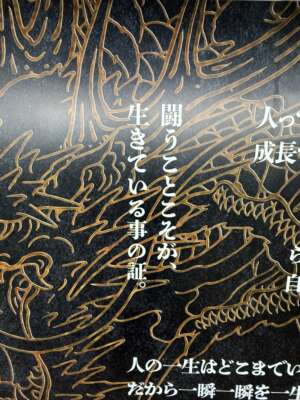 人って
成長
ら
自
闘うことこそが、
生きている事の証。
人の一生はどこまでい
だから一瞬一瞬を一生